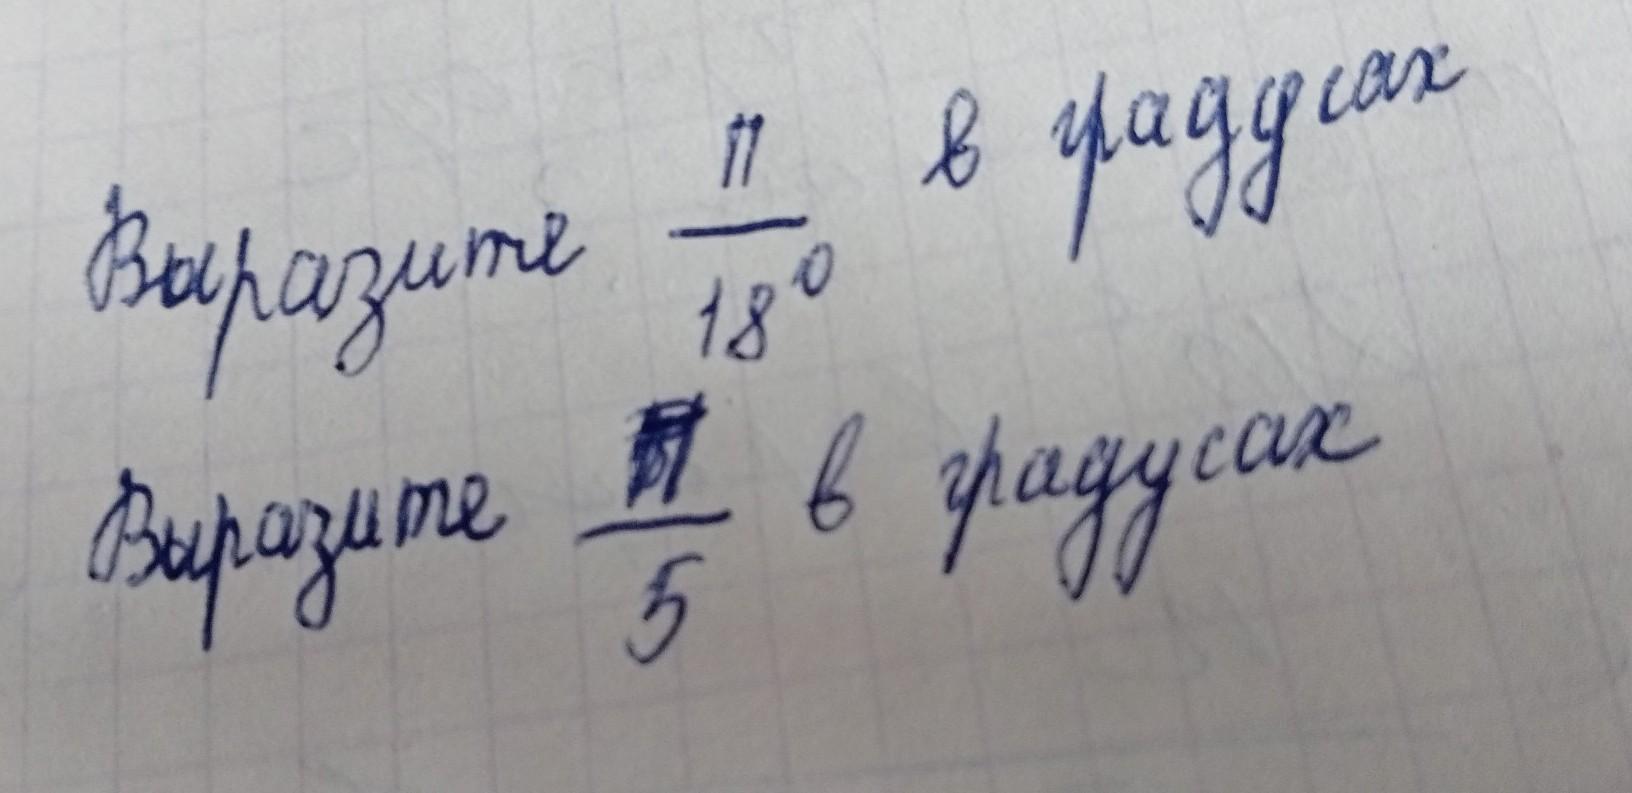 Выразите π/18⁰ в градусах
Выразите π/5 в градусах